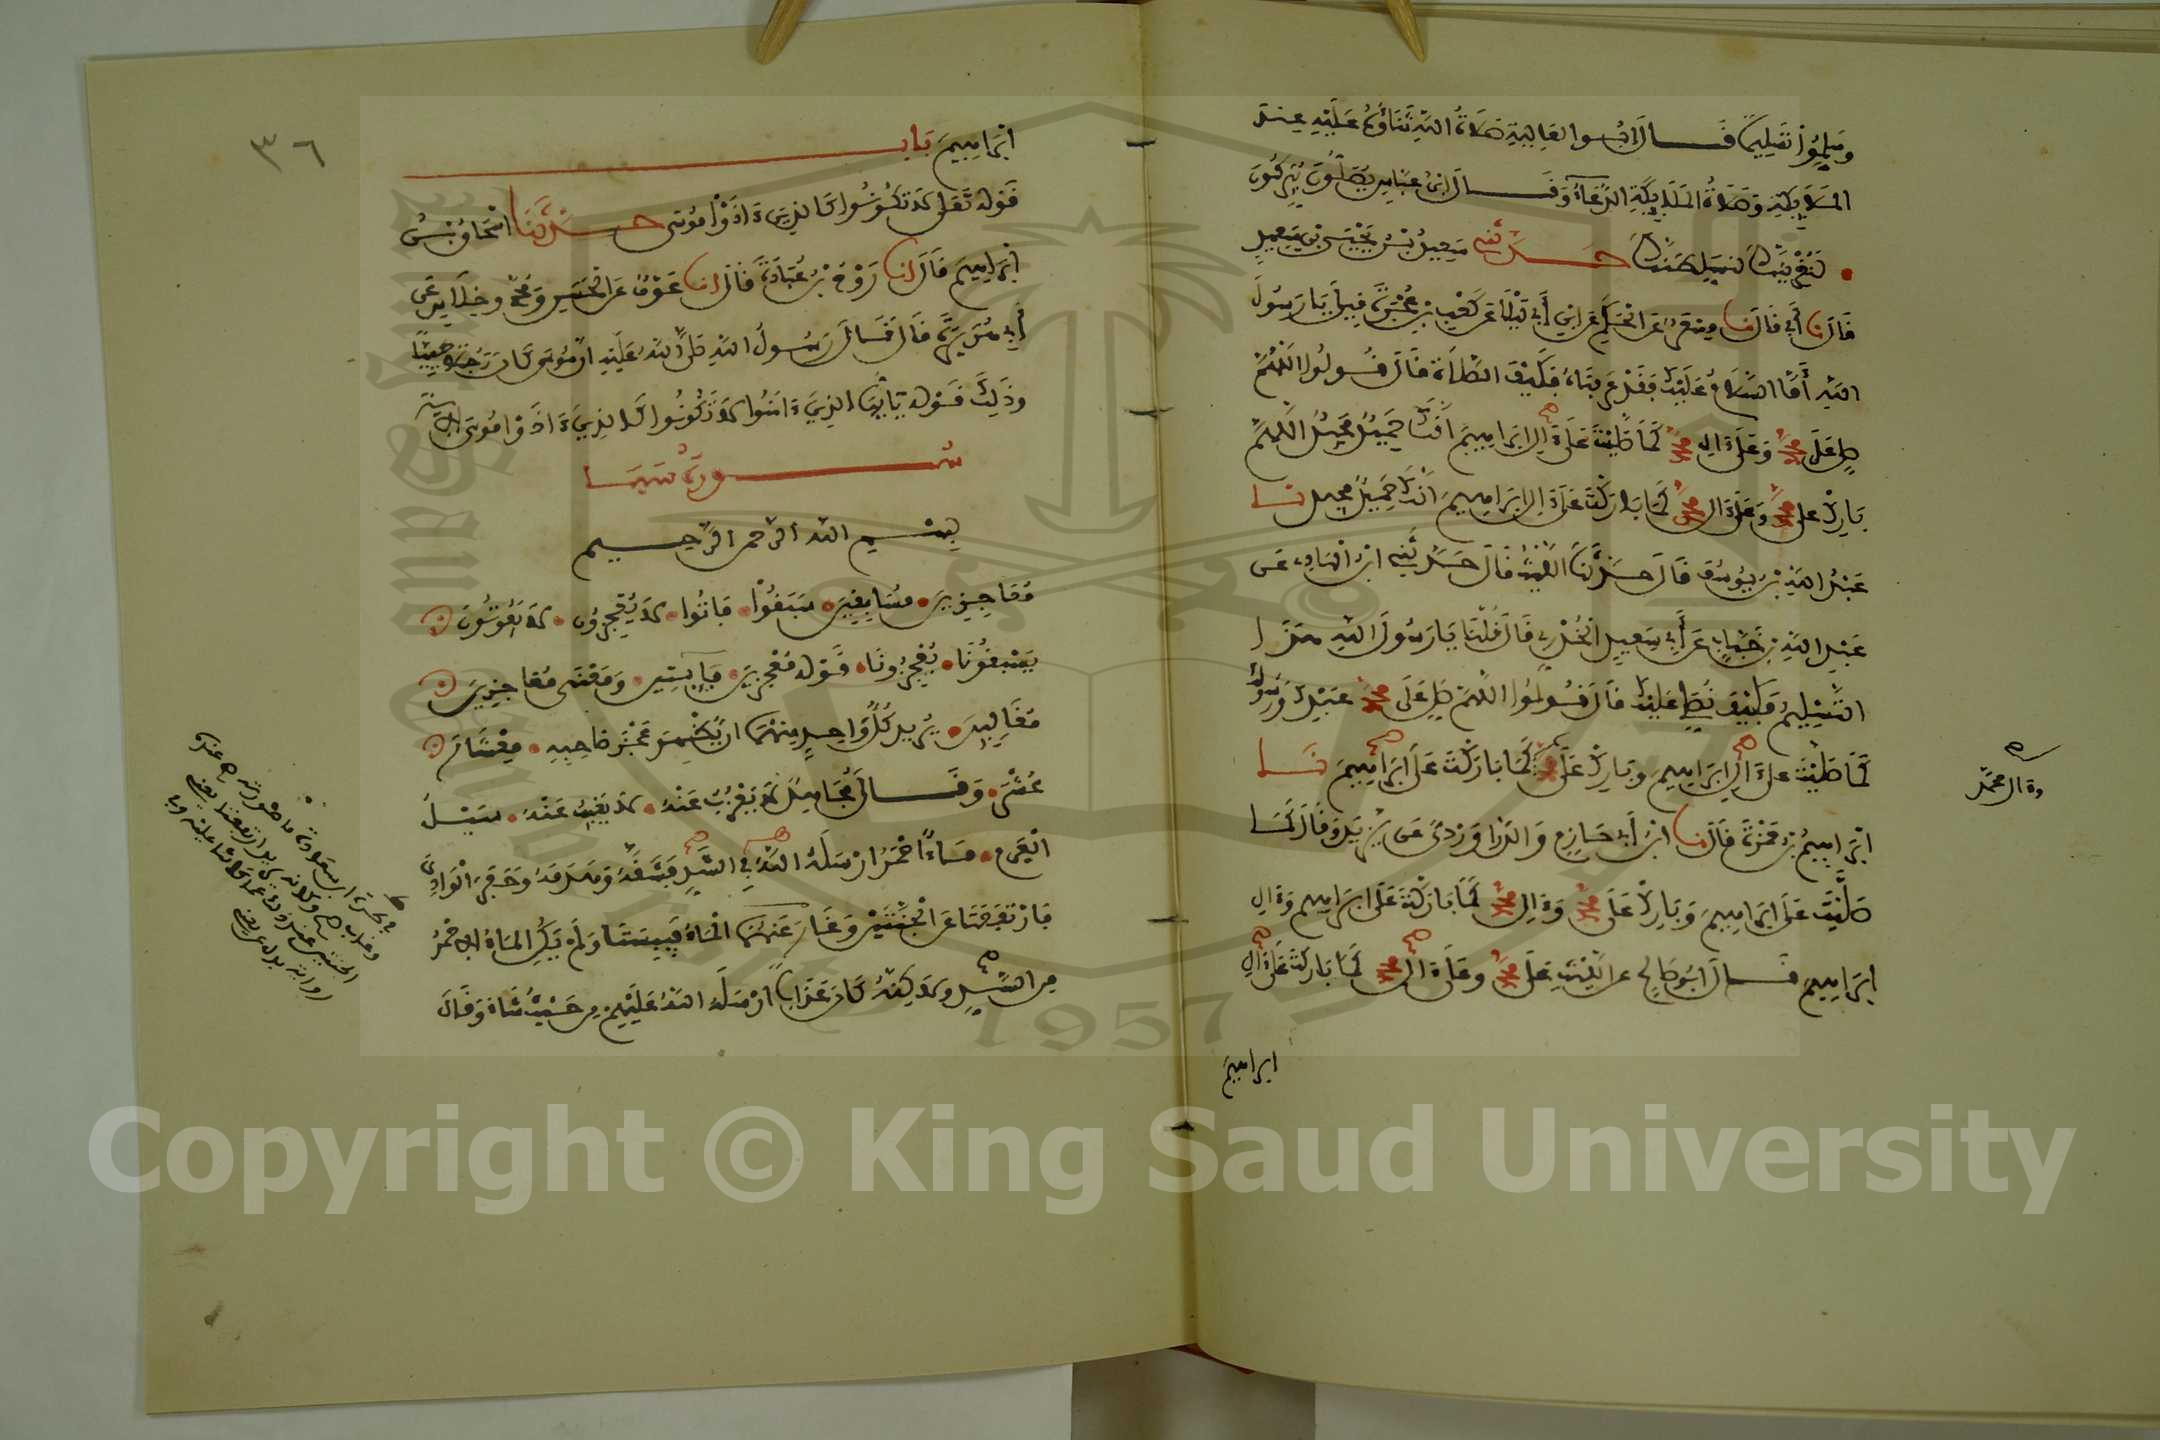 وسلموا تسليما قال ابو العالية صلاة الله ثناؤه عليه عند
الملايكة وصلاة الملايكة الدعاء وقال ابن عباس يصلون يبركون
لنغرينك لنسلطنك حدثني سعيد بن يحيى بن سعيد
قال نا أبي قال نا مسعر عن الحكم عن ابن أبي ليلى عن كعب بن عجرة قيل يا رسول
الله أما السلام عليك فقد عرفناه فكيف الصلاة قال قولوا اللهم
صل على محمد وعلى ءال محمد كما صليت على ءال ابراهيم انك حميد مجيد اللهم
بارك على محمد وعلى ءال محمد كما باركت على ءال ابراهيم انك حميد مجيد نا
عبد الله بن يوسف قال حدثنا الليث قال حدثني ابن الهادي عن
عبد الله بن خباب عن أبي سعيد الخدري قال قلنا يا رسول الله هذا
التسليم فكيف نصلي عليك قال قولوا اللهم صل على محمد عبدك ورسولك
كما صليت على ءال ابراهيم وبارك على محمد كما باركت على ابراهيم نا
ابراهيم بن حمزة قال نا ابن أبي حازم والدراوردي عن يزيد وقال كما
صليت على ابراهيم وبارك على محمد وءال محمد كما باركت على ابراهيم وءال
ابراهيم قال ابو صالح عن الليث على محمد وعلى ءال محمد كما باركت على ءال
ابراهيم
وءال محمد
٣٦
ابراهيم باب
قوله تعلى لا تكونوا كالذين ءاذوا موسى حدثنا اسحاق بن
ابراهيم قال انا روح بن عبادة قال انا عوف عن الحسن ومحمد وخلاس عن
أبي هريرة قال قال رسول الله صلى الله عليه ان موسى كان رجلا حييا
وذلك قوله يأيها الذين ءامنوا لا تكونوا كالذين ءاذوا موسى الاية
سورة سبا
بسم الله الرحمن الرحيم
معاجزين مسابقين سبقوا فاتوا لا يعجزون لا يفوتون
يسبقونا يعجزونا قوله معجزين بفايتين ومعنى معاجزين
مغالبين يريد كل واحد منهما ان يظهر عجز صاحبه معشار
عشر وقال مجاهد لا يعزب عنه لا يغيب عنه سيل
العرم ماءا احمر ارسله الله في السد فشقه وهدمه وحفر الوادي
فارتفعتا عن الجنتين وغار عنهما الماء فيبستا ولم يكن الماء الاحمر
من السد ولاكنه كان عذابا ارسله الله عليهم من حيث شاء وقال